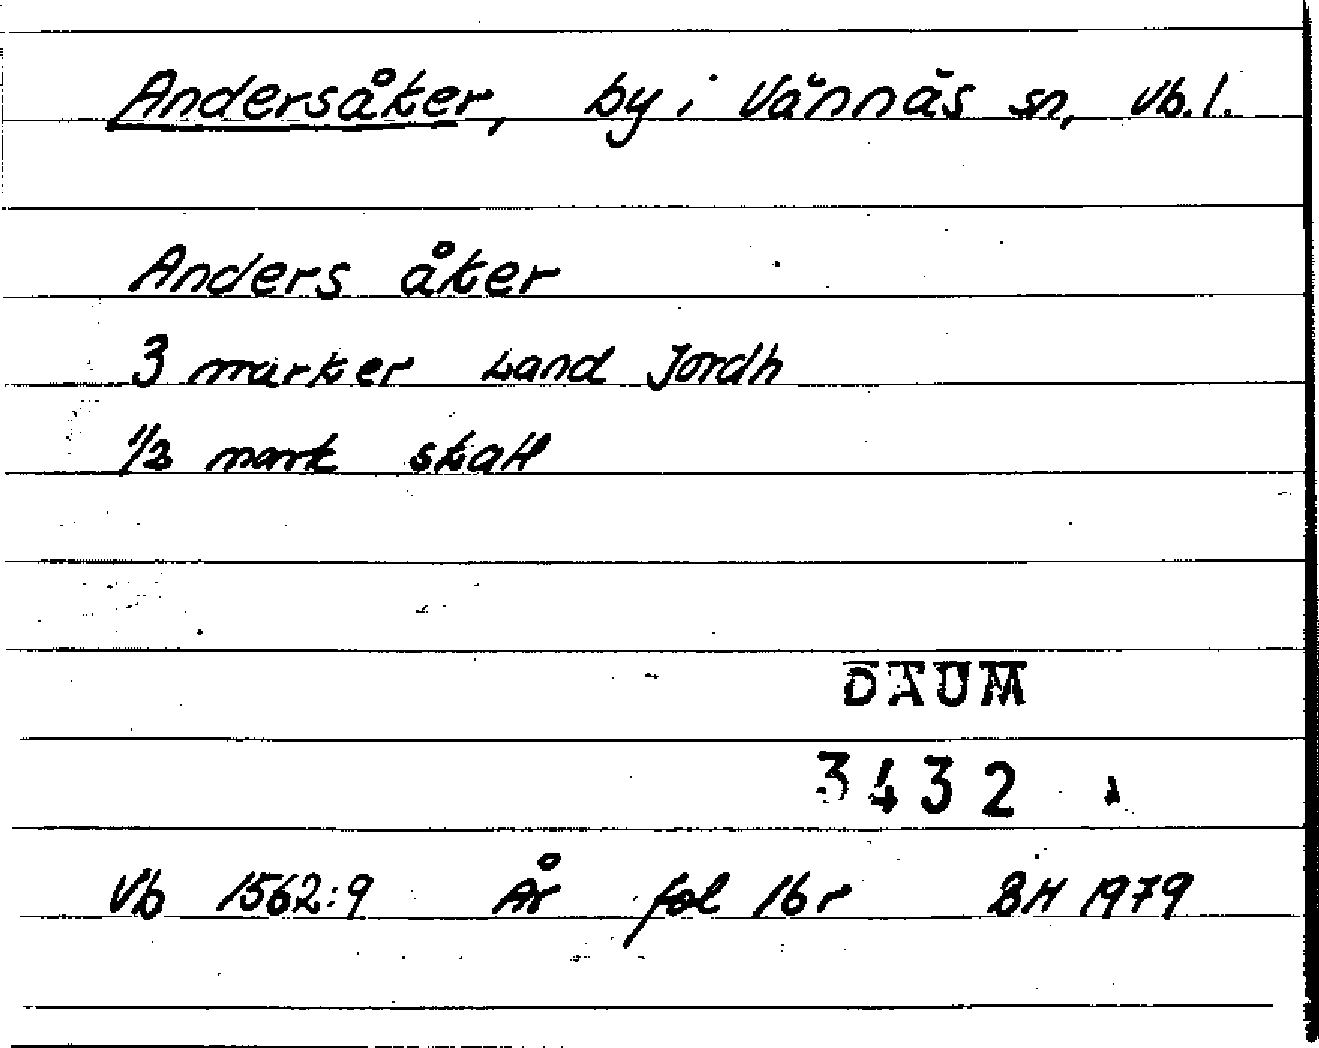 Andersåker, by i Vännäs sn, Vb.l.
Anders åker
3 marker Land Jordh
1/2 mark skatt
DAUM
3432
Vb 1562:9 År fol 16 r BH 1979